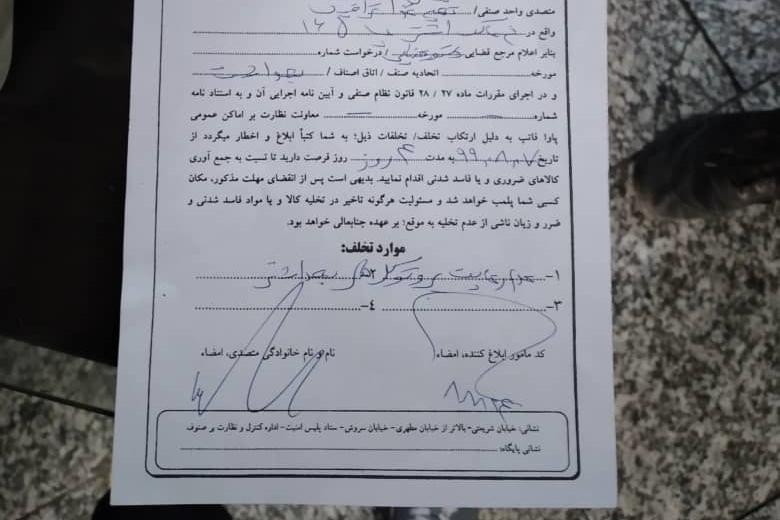 متصدی واحد صنفی/
واقع در ۱۶۵
بنابر اعلام مرجع قضایی / درخواست شماره
مورخه اتحادیه صنف / اتاق اصناف / بهداشت
و در اجرای مقررات ماده ۲۷ / ۲۸ قانون نظام صنفی و آیین نامه اجرایی آن و به استناد نامه
شماره مورخه معاونت نظارت بر اماکن عمومی
پاوا فاتب به دلیل ارتکاب تخلف/ تخلفات ذیل؛ به شما کتباً ابلاغ و اخطار میگردد از
تاریخ ۹۹،۸،۰۷ به مدت ۴ روز روز فرصت دارید تا نسبت به جمع آوری
کالاهای ضروری و یا فاسد شدنی اقدام نمایید. بدیهی است پس از انقضای مهلت مذکور، مکان
کسبی شما پلمب خواهد شد و مسئولیت هرگونه تاخیر در تخلیه کالا و یا مواد فاسد شدنی و
ضرر و زیان ناشی از عدم تخلیه به موقع؛ بر عهده جنابعالی خواهد بود.
موارد تخلف:
۱- عدم رعایت پروتوکل های بهداشتی ۲-
۳- ۴-
کد مامور ابلاغ کننده، امضاء نام و نام خانوادگی متصدی، امضاء
نشانی: خیابان شریعتی- بالاتر از خیابان مطهری- خیابان سروش- ستاد پلیس امنیت- اداره کنترل و نظارت بر صنوف
نشانی پایگاه: